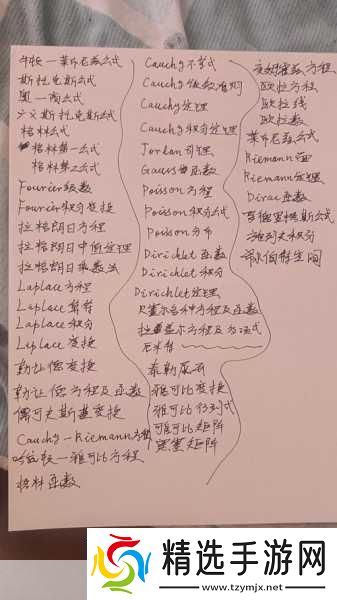 牛顿—莱布尼兹公式
斯托克斯公式
奥—高公式
广义斯托克斯公式
格林公式
格林第一公式
格林第二公式
Fourier级数
Fourier积分变换
拉格朗日方程
拉格朗日中值定理
拉格朗日乘数法
Laplace方程
Laplace算符
Laplace积分
Laplace变换
勒让德变换
勒让德方程及函数
儒可夫斯基变换
Cauchy—Riemann方程
哈密顿—雅可比方程
格林函数
Cauchy不等式
Cauchy级数准则
Cauchy定理
Cauchy积分定理
Jordan引理
Gauss函数
Poisson方程
Poisson积分公式
Poisson分布
Dirichlet函数
Dirichlet积分
Dirichlet定理
贝塞尔各种方程及函数
方程及多项式
厄米特
泰勒展开
雅可比变换
雅可比行列式
可比矩阵
矩阵
方程
欧拉方程
欧拉线
欧拉数
莱布尼兹公式
Riemann面
Riemann定理
Dirac函数
公式
积分
希尔伯特空间
精选手游网
www.tzymjx.net